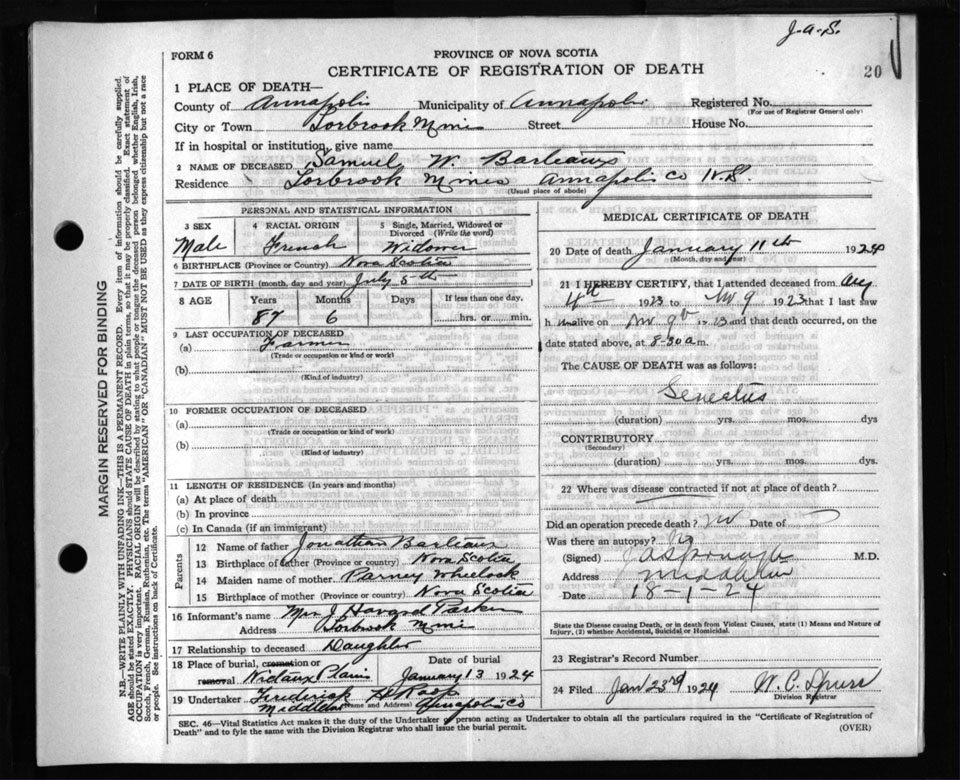 J.A.S.
FORM 6
PROVINCE OF NOVA SCOTIA
CERTIFICATE OF REGISTRATION OF DEATH
20
1 PLACE OF DEATH—
County of Annapolis Municipality of Annapolis Registered No.
(For use of Registrar General only)
City or Town Torbrook Mines Street House No.
If in hospital or institution, give name
2 NAME OF DECEASED Samuel W. Barteaux
Residence Torbrook Mines Annapolis Co N.S.
(Usual place of abode)
PERSONAL AND STATISTICAL INFORMATION
3 SEX
Male
4 RACIAL ORIGIN
French
5 Single, Married, Widowed or Divorced (Write the word)
Widower
6 BIRTHPLACE (Province or Country) Nova Scotia
7 DATE OF BIRTH (month, day and year) July 5th
8 AGE Years Months Days If less than one day,
87 6 hrs. or min.
9 LAST OCCUPATION OF DECEASED
(a) Farmer
(Trade or occupation or kind or work)
(b)
(Kind of industry)
10 FORMER OCCUPATION OF DECEASED
(a)
(Trade or occupation or kind of work)
(b)
(Kind of industry)
11 LENGTH OF RESIDENCE (In years and months)
(a) At place of death
(b) In province
(c) In Canada (if an immigrant)
Parents
12 Name of father Jonathan Barteaux
13 Birthplace of father (Province or country) Nova Scotia
14 Maiden name of mother Parney Wheelock
15 Birthplace of mother (Province or country) Nova Scotia
16 Informant's name Mrs J Howard Parker
Address Torbrook Mines
17 Relationship to deceased Daughter
18 Place of burial, cremation or removal Nictaux Plains
Date of burial
January 13 1924
19 Undertaker Frederick Roop
(Name and Address)
Middleton Annapolis Co
MEDICAL CERTIFICATE OF DEATH
20 Date of death January 11th 1924
(Month, day and year)
21 I HEREBY CERTIFY, that I attended deceased from Aug
4th 1923 to Nov 9 1923 that I last saw
h im alive on Nov 9th 1923 and that death occurred, on the
date stated above, at 8-30 a m.
The CAUSE OF DEATH was as follows:
Senectus
(duration) yrs. mos. dys
CONTRIBUTORY
(Secondary)
(duration) yrs. mos. dys.
22 Where was disease contracted if not at place of death?
Did an operation precede death? no Date of
Was there an autopsy? No
(Signed) M.D.
Address Middleton
Date 18-1-24
State the Disease causing Death, or in death from Violent Causes, state (1) Means and Nature of
Injury, (2) whether Accidental, Suicidal or Homicidal.
23 Registrar's Record Number
24 Filed Jan 23rd 1924 W. C.
Division Registrar
SEC. 46—Vital Statistics Act makes it the duty of the Undertaker of person acting as Undertaker to obtain all the particulars required in the "Certificate of Registration of
Death" and to fyle the same with the Division Registrar who shall issue the burial permit. (OVER)
MARGIN RESERVED FOR BINDING
N.B.—WRITE PLAINLY WITH UNFADING INK—THIS IS A PERMANENT RECORD. Every item of information should be carefully supplied.
AGE should be stated EXACTLY. PHYSICIANS should STATE CAUSE OF DEATH in plain terms, so that it may be properly classified. Exact statement of
OCCUPATION is very important. RACIAL ORIGIN will be described by stating to what people or tongue the deceased person belonged whether English, Irish,
Scotch, French, German, Russian, Ruthenian, etc. The terms "AMERICAN" OR "CANADIAN" MUST NOT BE USED as they express citizenship but not a race
or people. See instructions on back of Certificate.